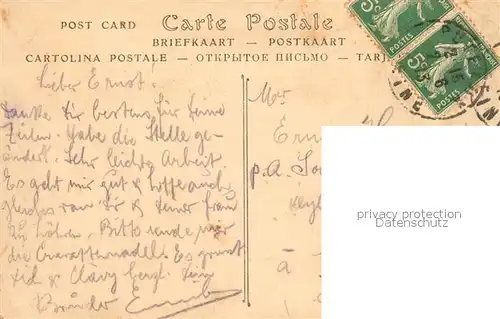 POST CARD Carte Postale
BRIEFKAART - POSTKAART
CARTOLINA POSTALE - ОТКРЫТОЕ ПИСЬМО - TARJ
5c
5c
POSTES
Lieber Ernst.
Danke Dir bestens für Deine
Zeilen. Habe die Stelle ge-
ändert. Sehr leichte Arbeit.
Es geht mir gut & hoffe auch
gleiches von Dir & Deiner Frau
zu hören. Bitte sende mir
die Cravattennadel. Es grüsst
Dich & Clary herzl. Dein
Bruder
Mr
p.a.
à
privacy protection
Datenschutz